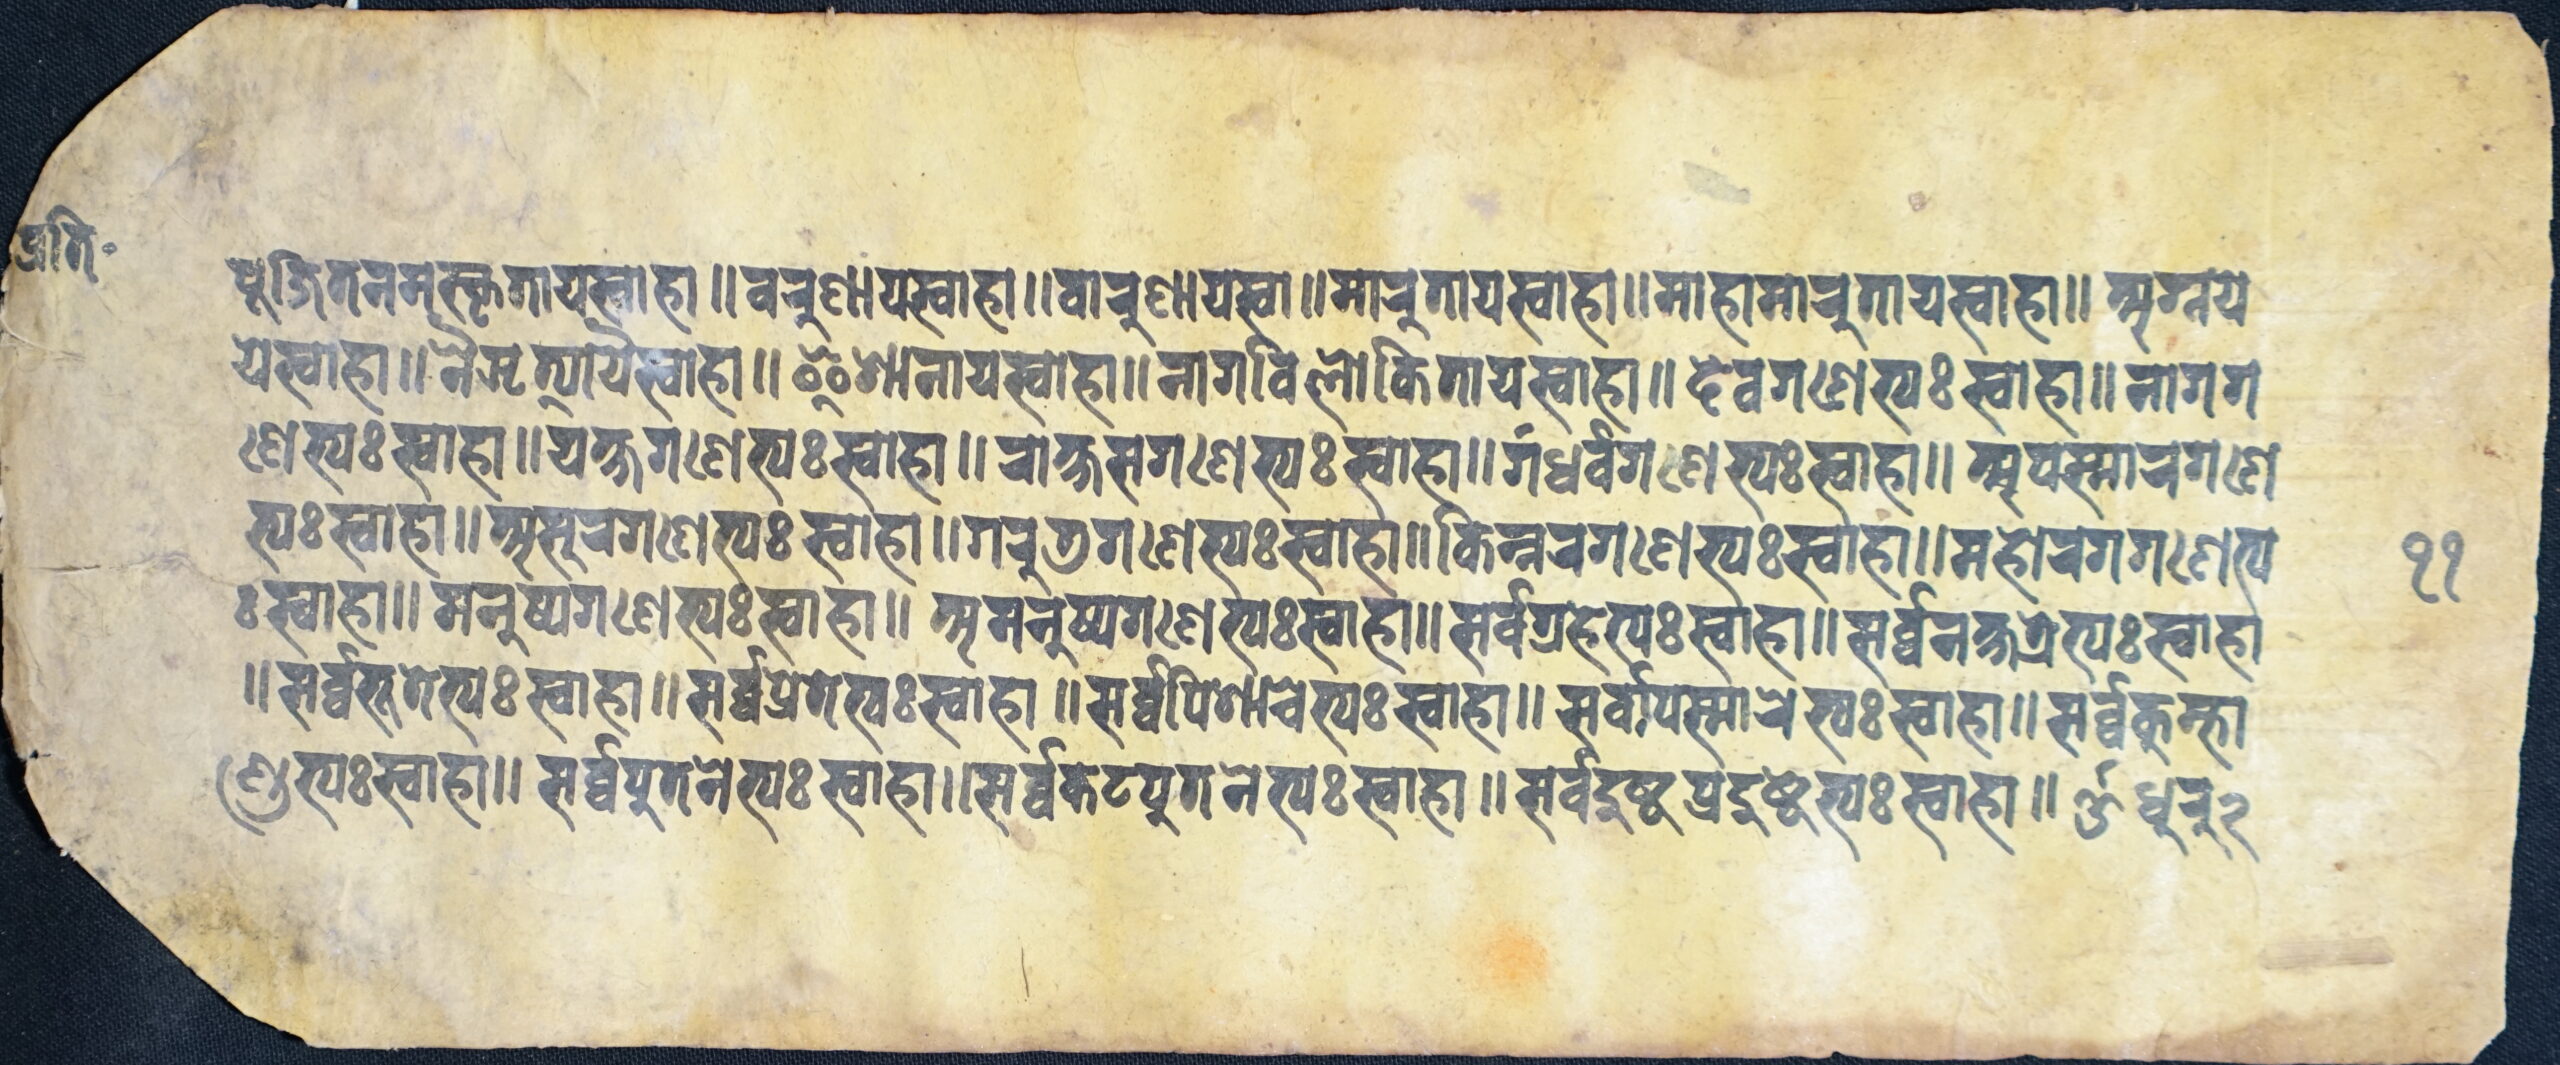 प्रति॰
पूजितनमस्कृतायस्वाहा॥वरुणायस्वाहा॥वारुणायस्वा॥मारुतायस्वाहा॥माहामारुतायस्वाहा॥अग्नये
येस्वाहा॥नैऋत्यायैस्वाहा॥ईशानायस्वाहा॥नागविलोकितायस्वाहा॥देवगणेभ्यःस्वाहा॥नागग
णेभ्यःस्वाहा॥यक्षगणेभ्यःस्वाहा॥राक्षसगणेभ्यःस्वाहा॥गंधर्वगणेभ्यःस्वाहा॥अपस्मारगणे
भ्यःस्वाहा॥असुरगणेभ्यःस्वाहा॥गरुडगणेभ्यःस्वाहा॥किन्नरगणेभ्यःस्वाहा॥महोरगगणेभ्य
ःस्वाहा॥मनुष्यगणेभ्यःस्वाहा॥अमनुष्यगणेभ्यःस्वाहा॥सर्वग्रहेभ्यःस्वाहा॥सर्व्वनक्षत्रेभ्यःस्वाहा
॥सर्व्वभूतेभ्यःस्वाहा॥सर्व्वप्रेतेभ्यःस्वाहा॥सर्व्वपिशाचेभ्यःस्वाहा॥सर्वापस्मारेभ्यःस्वाहा॥सर्व्वकुम्भा
ण्डेभ्यःस्वाहा॥सर्व्वपुतनेभ्यःस्वाहा॥सर्व्वकटपुतनेभ्यःस्वाहा॥सर्वदुष्टप्रदुष्टेभ्यःस्वाहा॥ॐधुरु२
११